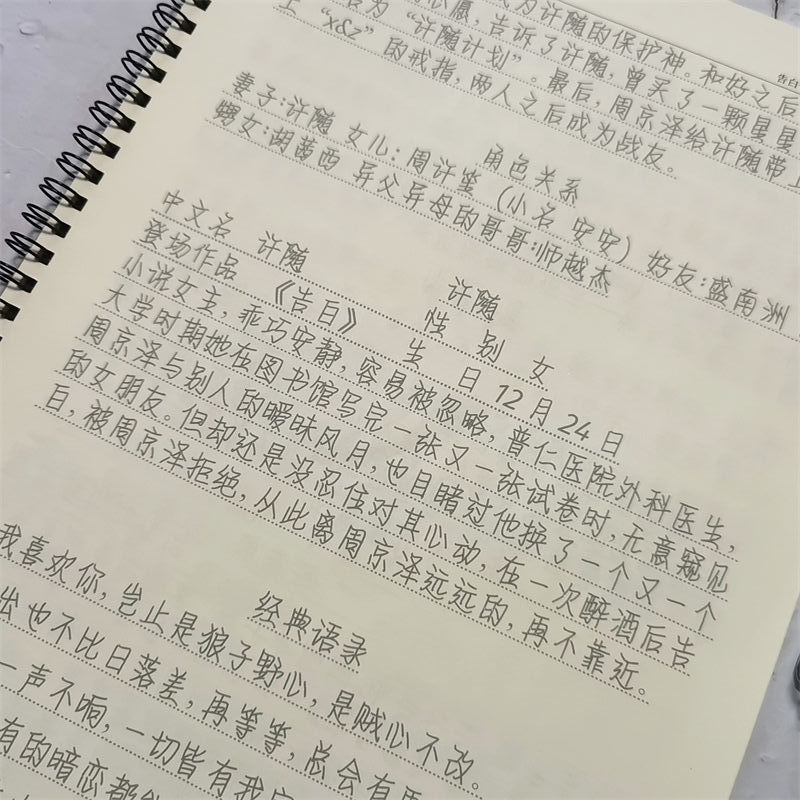 为许随的保护神。和好之后
心愿,告诉了许随,曾买了一颗星星
名为“许随计划”。最后,周京泽给许随带上
“x&z”的戒指,两人之后成为战友。
告白
角色关系
妻子:许随 女儿:周许笙(小名 安安) 好友:盛南洲
甥女:胡茜西 异父异母的哥哥:师越杰
许随
中文名 许随 性 别 女
登场作品 《告白》 生 日 12月24日
小说女主,乖巧安静,容易被忽略,普仁医院外科医生,
大学时期她在图书馆写完一张又一张试卷时,无意窥见
周京泽与别人的暧昧风月,也目睹过他换了一个又一个
的女朋友。但却还是没忍住对其心动,在一次醉酒后告
白,被周京泽拒绝,从此离周京泽远远的,再不靠近。
经典语录
我喜欢你,岂止是狼子野心,是贼心不改。
出也不比日落差,再等等,总会有
一声不响,一切皆有我
有的暗恋都